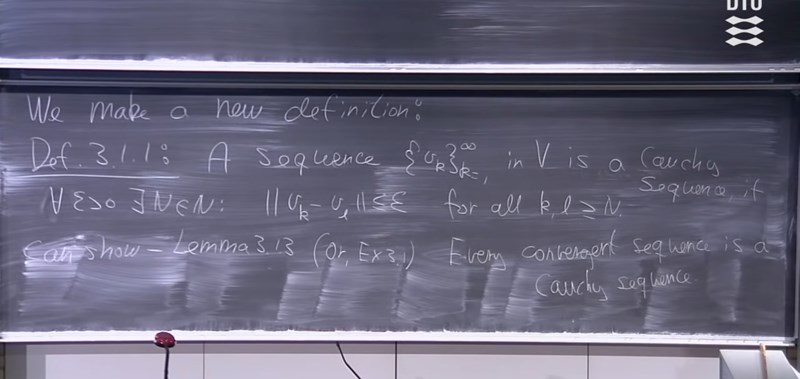 DTU
We make a new definition:
Def. 3.1.1: A sequence {v_k}_{k=1}^∞ in V is a Cauchy
Sequence, if
∀ ε>0 ∃ N∈ℕ: ||v_k - v_l|| ≤ ε for all k, l ≥ N.
Can show - Lemma 3.1.3 (Or, Ex 3.1) Every convergent sequence is a
Cauchy sequence